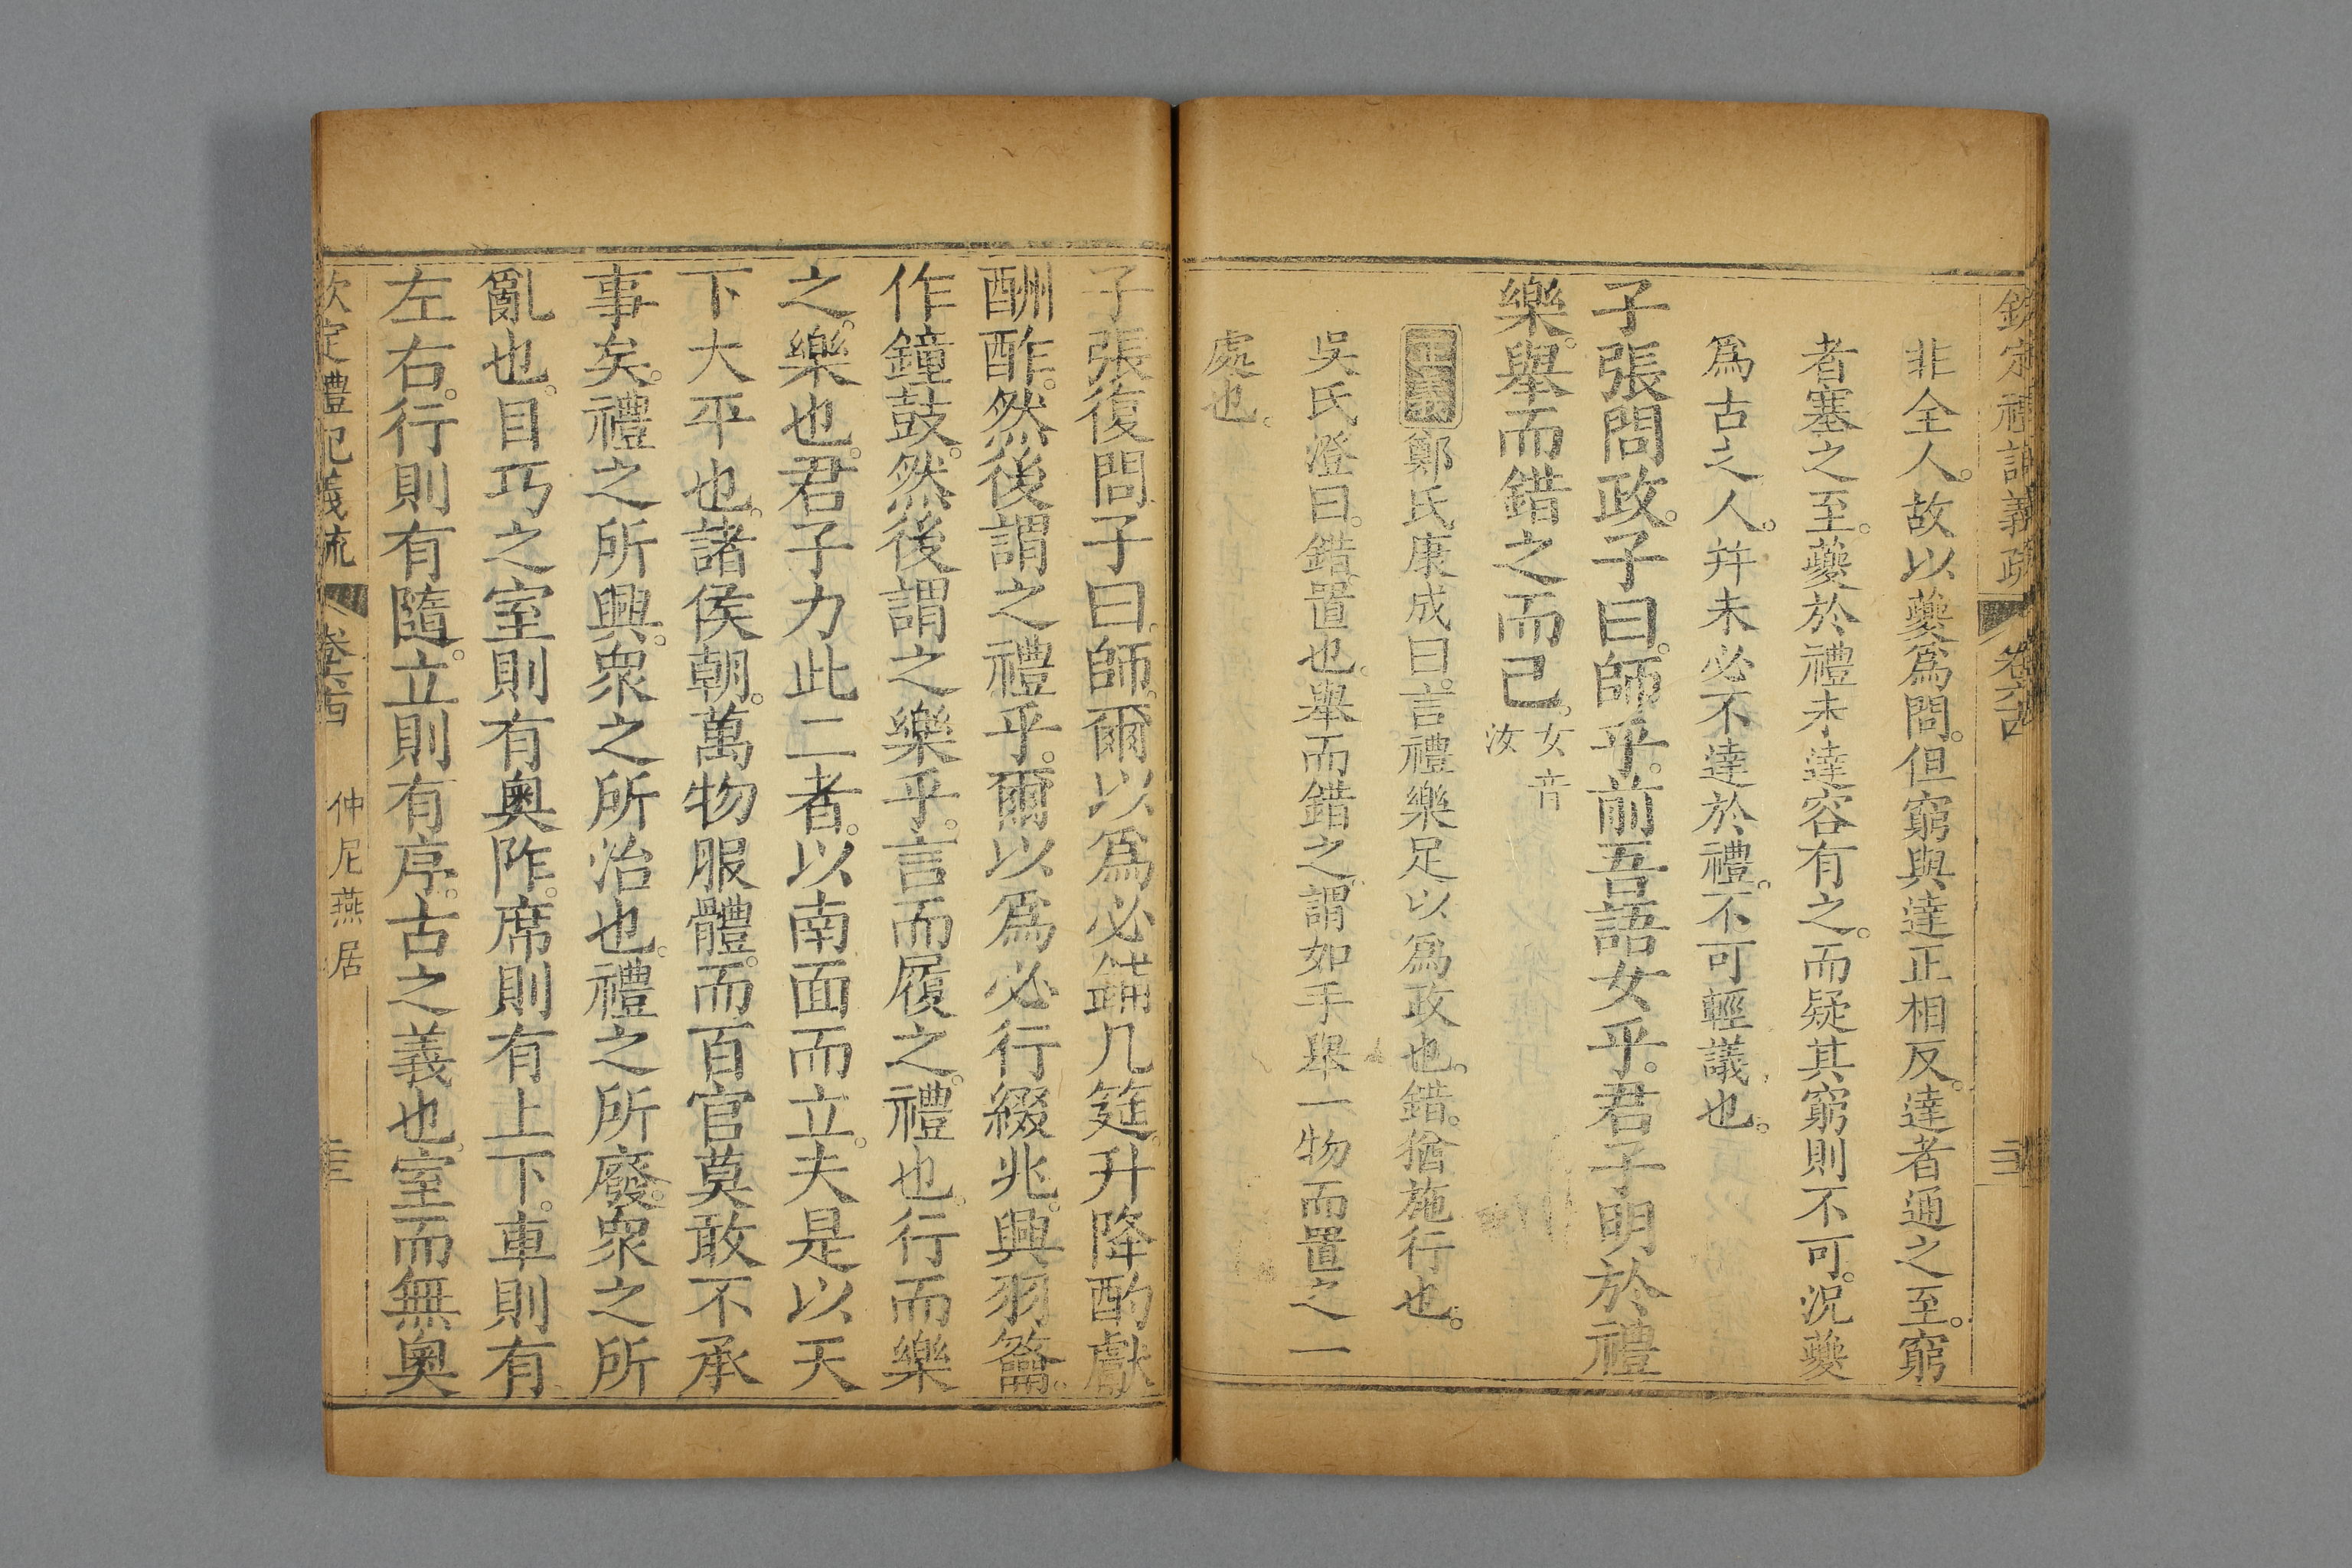 欽定禮記義疏 卷六古
非全人。故以夔爲問。但窮與達正相反。達者通之至。窮
者塞之至。夔於禮未達容有之。而疑其窮則不可。況夔
爲古之人。幷未必不達於禮。不可輕議也。
子張問政。子曰。師乎。前吾語女乎。君子明於禮
樂。舉而錯之而已。女音汝
鄭氏康成曰。言禮樂足以爲政也。錯。猶施行也。
吳氏澄曰。錯。置也。舉而錯之。謂如手舉一物而置之一
處也。
子張復問。子曰。師。爾以爲必鋪几筵。升降酌獻
酬酢。然後謂之禮乎。爾以爲必行綴兆。興羽籥。
作鐘鼓。然後謂之樂乎。言而履之。禮也。行而樂
之。樂也。君子力此二者。以南面而立。夫是以天
下大平也。諸侯朝。萬物服體。而百官莫敢不承
事矣。禮之所興。衆之所治也。禮之所廢。衆之所
亂也。目巧之室則有奧阼。席則有上下。車則有
左右。行則有隨。立則有序。古之義也。室而無奧
欽定禮記義疏 仲尼燕居